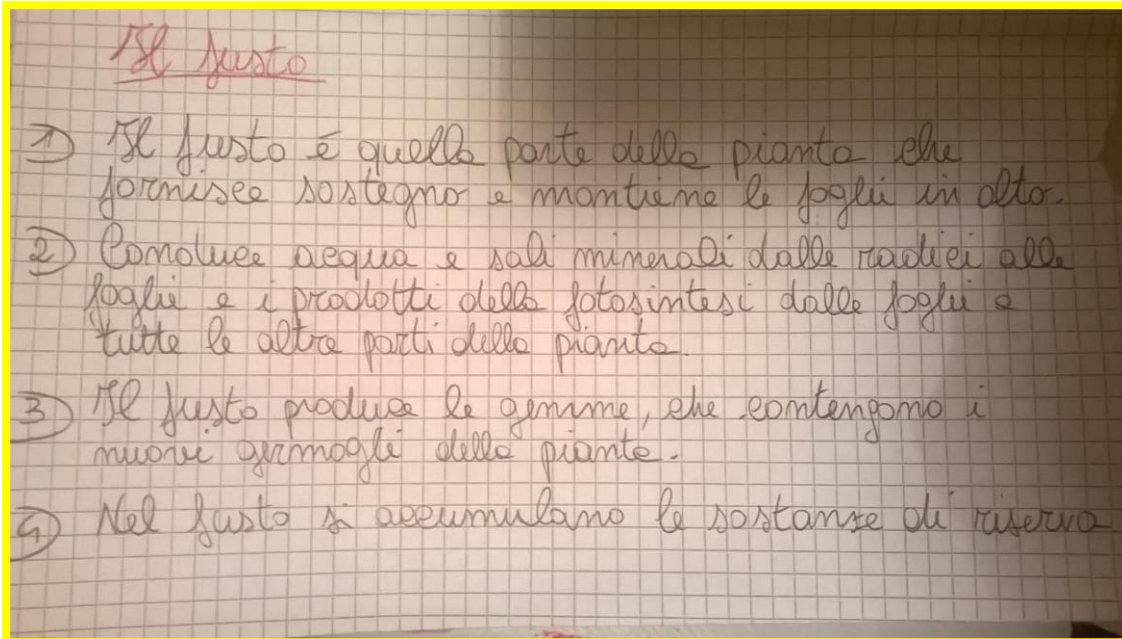 Il fusto
1) Il fusto è quella parte della pianta che
fornisce sostegno e mantiene le foglie in alto.
2) Conduce acqua e sali minerali dalle radici alle
foglie e i prodotti della fotosintesi dalle foglie a
tutte le altre parti della pianta.
3) Il fusto produce le gemme, che contengono i
nuovi germogli delle piante.
4) Nel fusto si accumulano le sostanze di riserva